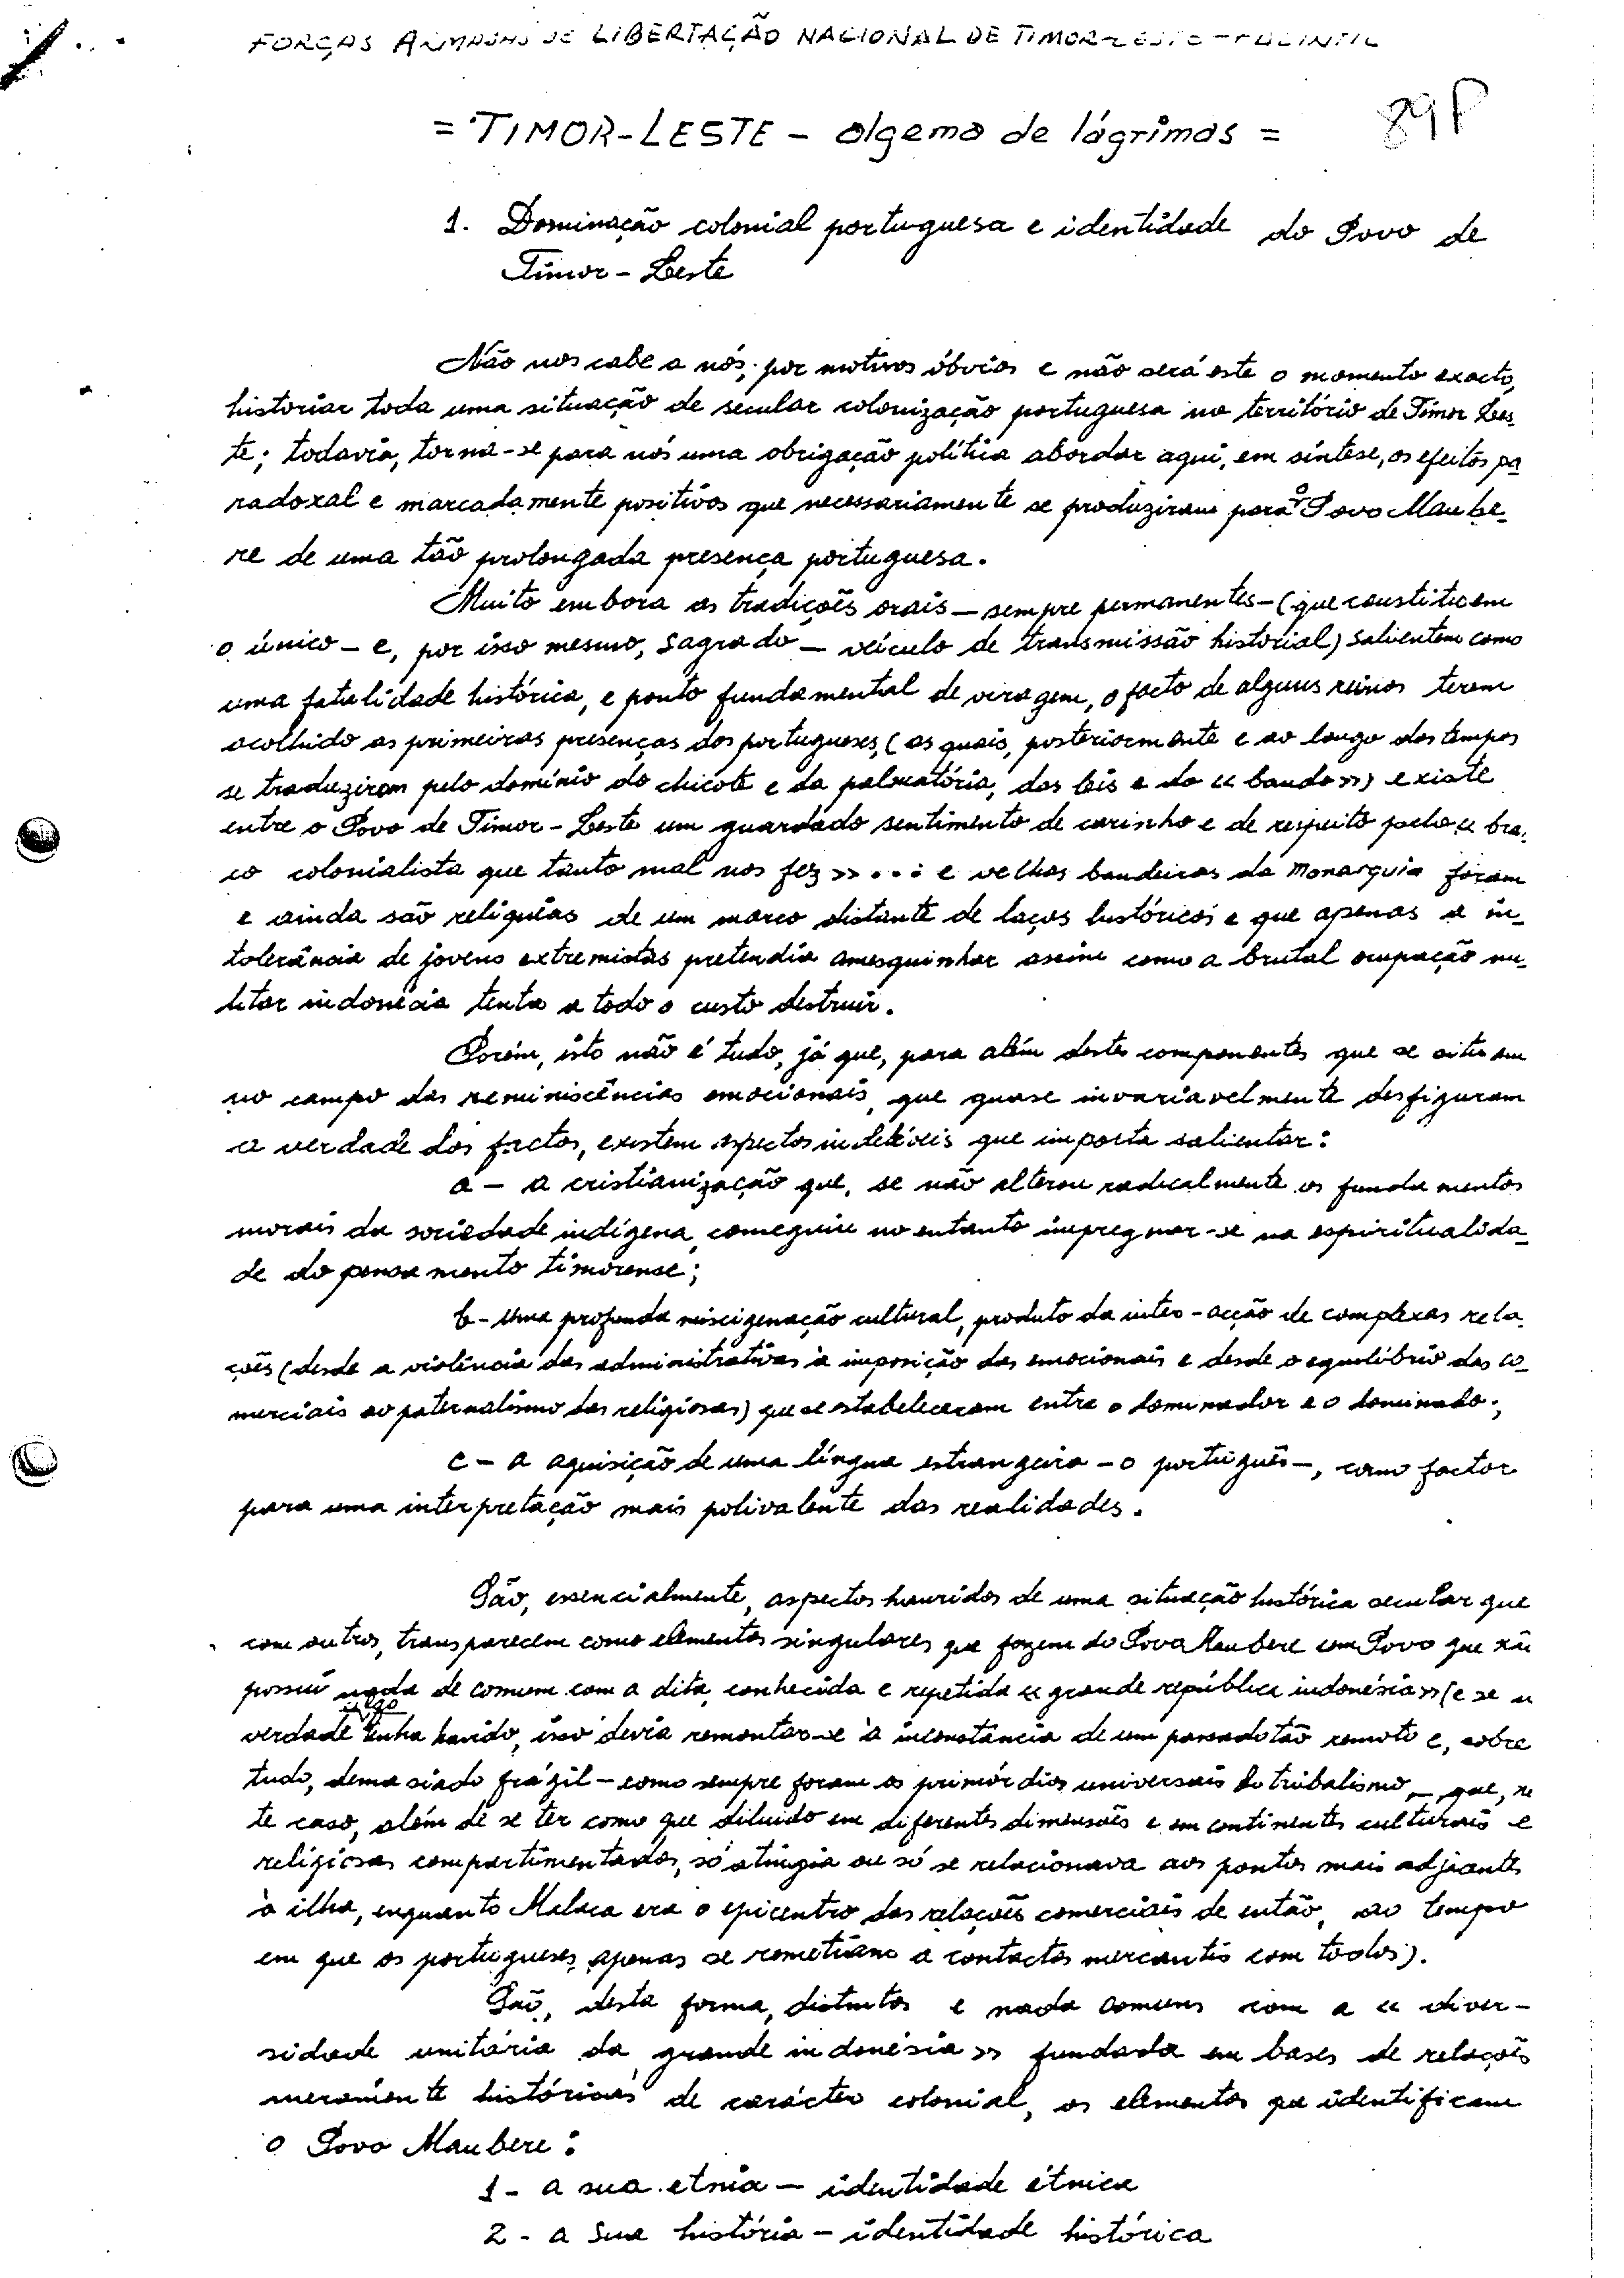 FORÇAS ARMADAS DE LIBERTAÇÃO NACIONAL DE TIMOR-LESTE - FALINTIL
89P
= TIMOR-LESTE - algema de lágrimas =
1. Dominação colonial portuguesa e identidade do Povo de
Timor-Leste
Não nos cabe a nós, por motivos óbvios e não será este o momento exacto,
historiar toda uma situação de secular colonização portuguesa no território de Timor Les-
te; todavia, torna-se para nós uma obrigação política abordar aqui, em síntese, os efeitos pa-
radoxal e marcadamente positivos que necessariamente se produziram para o Povo Maube-
re de uma tão prolongada presença portuguesa.
Muito embora as tradições orais - sempre permanentes - (que constituem
o único - e, por isso mesmo, sagrado - veículo de transmissão historial) salientem como
uma fatalidade histórica, e ponto fundamental de viragem, o facto de alguns reinos terem
acolhido as primeiras presenças dos portugueses, (as quais, posteriormente e ao longo dos tempos
se traduziram pelo domínio do chicote e da palmatória, das leis e do « bando») existe
entre o Povo de Timor-Leste um guardado sentimento de carinho e de respeito pelo « bra-
ço colonialista que tanto mal nos fez »... e velhas bandeiras da Monarquia foram
e ainda são relíquias de um marco distante de laços históricos e que apenas a in-
tolerância de jovens extremistas pretendia amesquinhar assim como a brutal ocupação mi-
litar indonésia tenta a todo o custo destruir.
Porém, isto não é tudo, já que, para além destes componentes que se situam
no campo das reminiscências emocionais, que quase invariavelmente desfiguram
a verdade dos factos, existem aspectos indeléveis que importa salientar:
a - a cristianização que, se não alterou radicalmente os fundamentos
morais da sociedade indígena, conseguiu no entanto impregnar-se na espiritualida-
de do pensamento timorense;
b - uma profunda miscigenação cultural, produto da inter-acção de complexas rela-
ções (desde a violência das administrativas à imposição das emocionais e desde o equilíbrio das co-
merciais ao paternalismo das religiosas) que se estabeleceram entre o dominador e o dominado;
c - a aquisição de uma língua estrangeira - o português -, como factor
para uma interpretação mais polivalente das realidades.
São, essencialmente, aspectos hauridos de uma situação histórica secular que
com outros, transparecem como elementos singulares que fazem do Povo Maubere um Povo que nã
possui nada de comum com a dita, conhecida e repetida « grande república indonésia » (e se n
verdade algo tenha havido, isso devia remontar-se à inconstância de um passado tão remoto e, sobre
tudo, demasiado frágil - como sempre foram os primórdios universais do tribalismo -, que, nes
te caso, além de se ter como que diluido em diferentes dimensões e em continentes culturais e
religiosas compartimentados, só atingia ou só se relacionava aos pontos mais adjacentes
à ilha, enquanto Malaca era o epicentro das relações comerciais de então, ao tempo
em que os portugueses apenas se remetiam a contactos mercantis com todos).
São, desta forma, distintos e nada comuns com a « diver-
sidade unitária da grande indonésia » fundada em bases de relações
meramente históricas de carácter colonial, os elementos que identificam
o Povo Maubere:
1 - a sua etnia - identidade étnica
2 - a sua história - identidade histórica